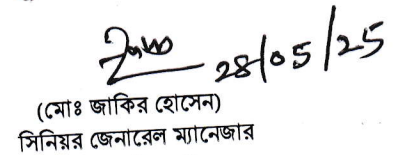 28/05/25
(মোঃ জাকির হোসেন)
সিনিয়র জেনারেল ম্যানেজার